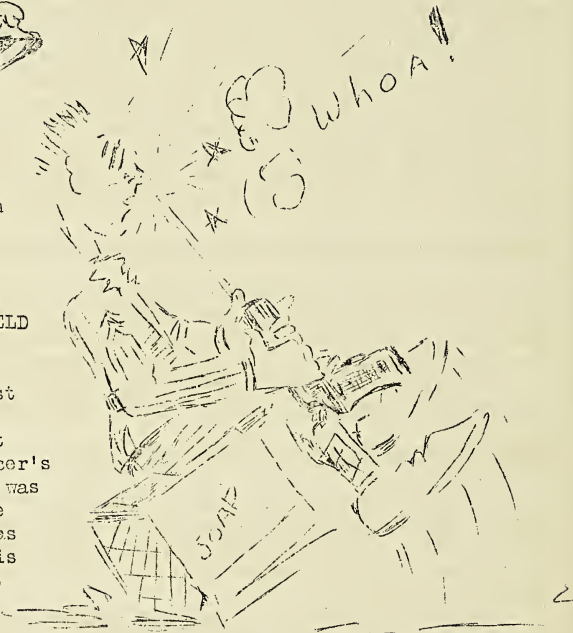 WhOA!
ELD
st
t
cer's
was
e
es
is
SOAP